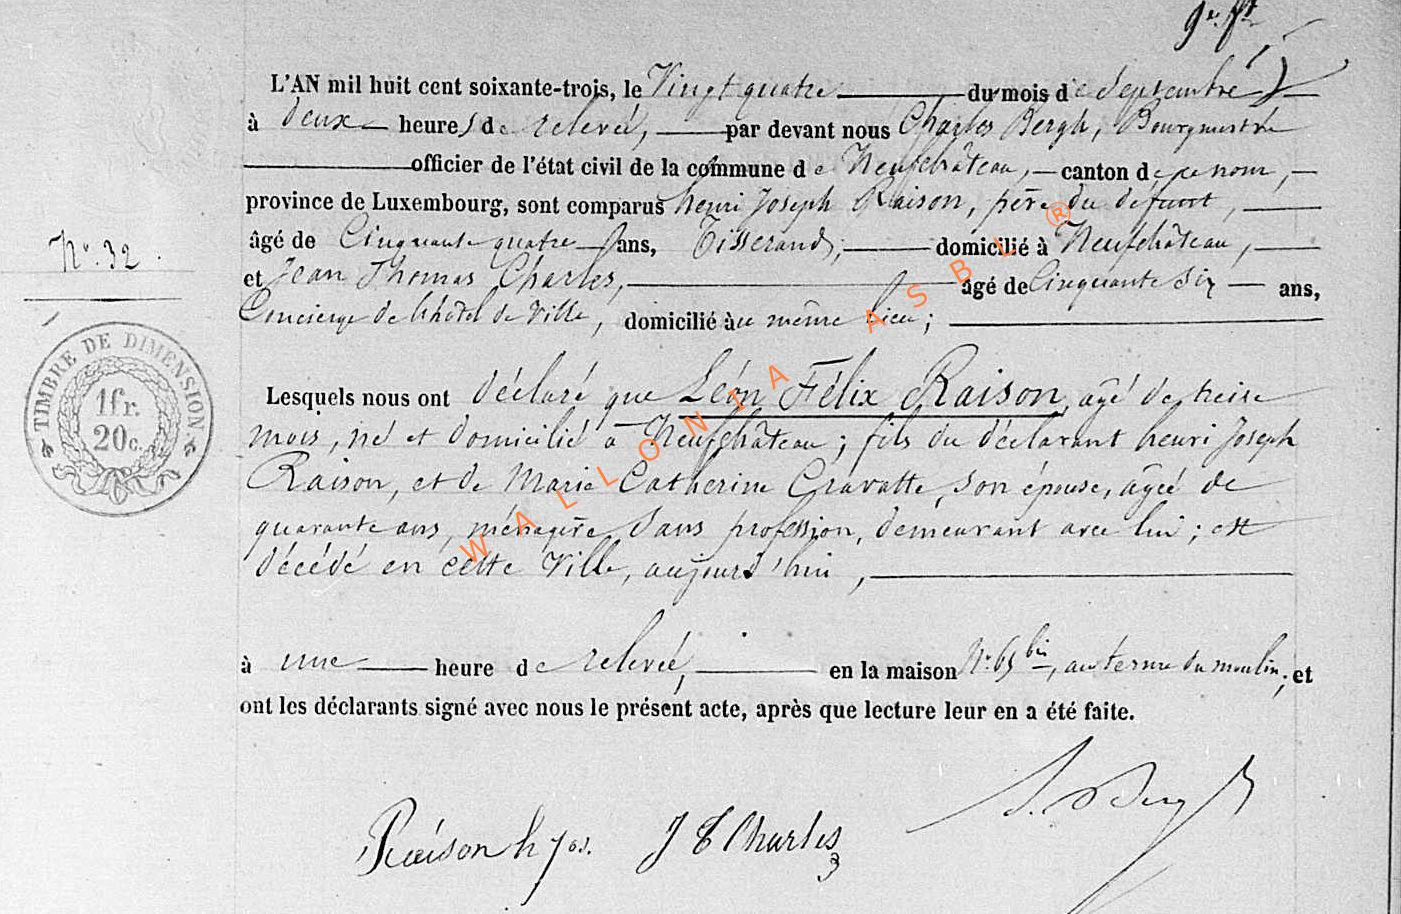 9e ft
L'AN mil huit cent soixante-trois, le Vingt quatre du mois de Septembre
à deux heures de relevée, par devant nous Charles Bergh, Bourgmestre
officier de l'état civil de la commune de Neufchâteau, canton de ce nom,
province de Luxembourg, sont comparus henri Joseph Raison, père du défunt,
âgé de Cinquante quatre ans, Tisserand, domicilié à Neufchâteau,
et Jean Thomas Charles, âgé de Cinquante six ans,
Concierge de l'hôtel de Ville, domicilié au même lieu;
N° 32.
TIMBRE DE DIMENSION
1fr.
20c.
Lesquels nous ont déclaré que Léon Félix Raison, agé de treize
mois, né et domicilié à Neufchâteau; fils du déclarant henri Joseph
Raison, et de Marie Catherine Gravatte, son épouse, agée de
quarante ans, ménagère sans profession, demeurant avec lui; est
décédé en cette Ville, aujourd'hui,
à une heure de relevée, en la maison N° 65 bis, au terme du moulin; et
ont les déclarants signé avec nous le présent acte, après que lecture leur en a été faite.
Raison h jos. J T Charles Bergh
WALLONIA ASBL ®